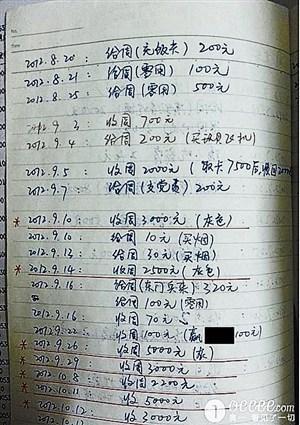 2012.8.20: 给周(充饭卡) 200元
2012.8.21: 给周(零用) 100元
2012.8.25: 给周(零用) 500元
2012.9.3: 收周 700元
2012.9.4: 给周 200元 (买 机)
2012.9.5: 收周 2000元 (取卡7500后,
2012.9.7: 给周(交党费) 200元
2012.9.10: 收周 3000元 (灰色)
2012.9.10: 给周 10元 (买烟)
2012.9.13: 给周 30元 (买烟)
2012.9.14: 收周 2500元 (灰色)
2012.9.16: 给周(东门买衣) 320元
给周 100元 (零用)
2012.9.16: 收周 70元
2012.9.22: 收周 100元 100元)
2012.9.26: 收周 5000元 (灰)
2012.9.29: 收周 3000元
2012.10.8: 收周 2200元
2012.10.11: 收周 5000元
2012.10.12 收周 3000元